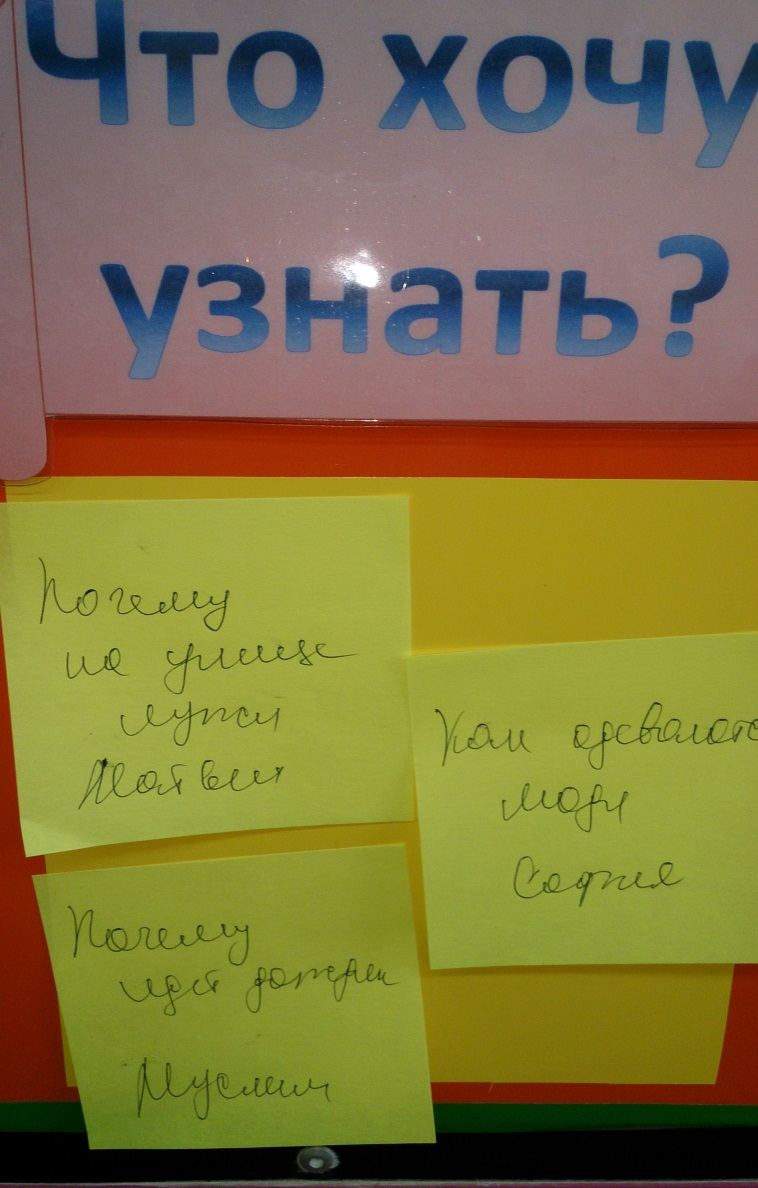 Что хочу
узнать?
Почему
на улице
лужи
Матвей
Как одевалотс
люди
София
Почему
идет дождик
Муслим